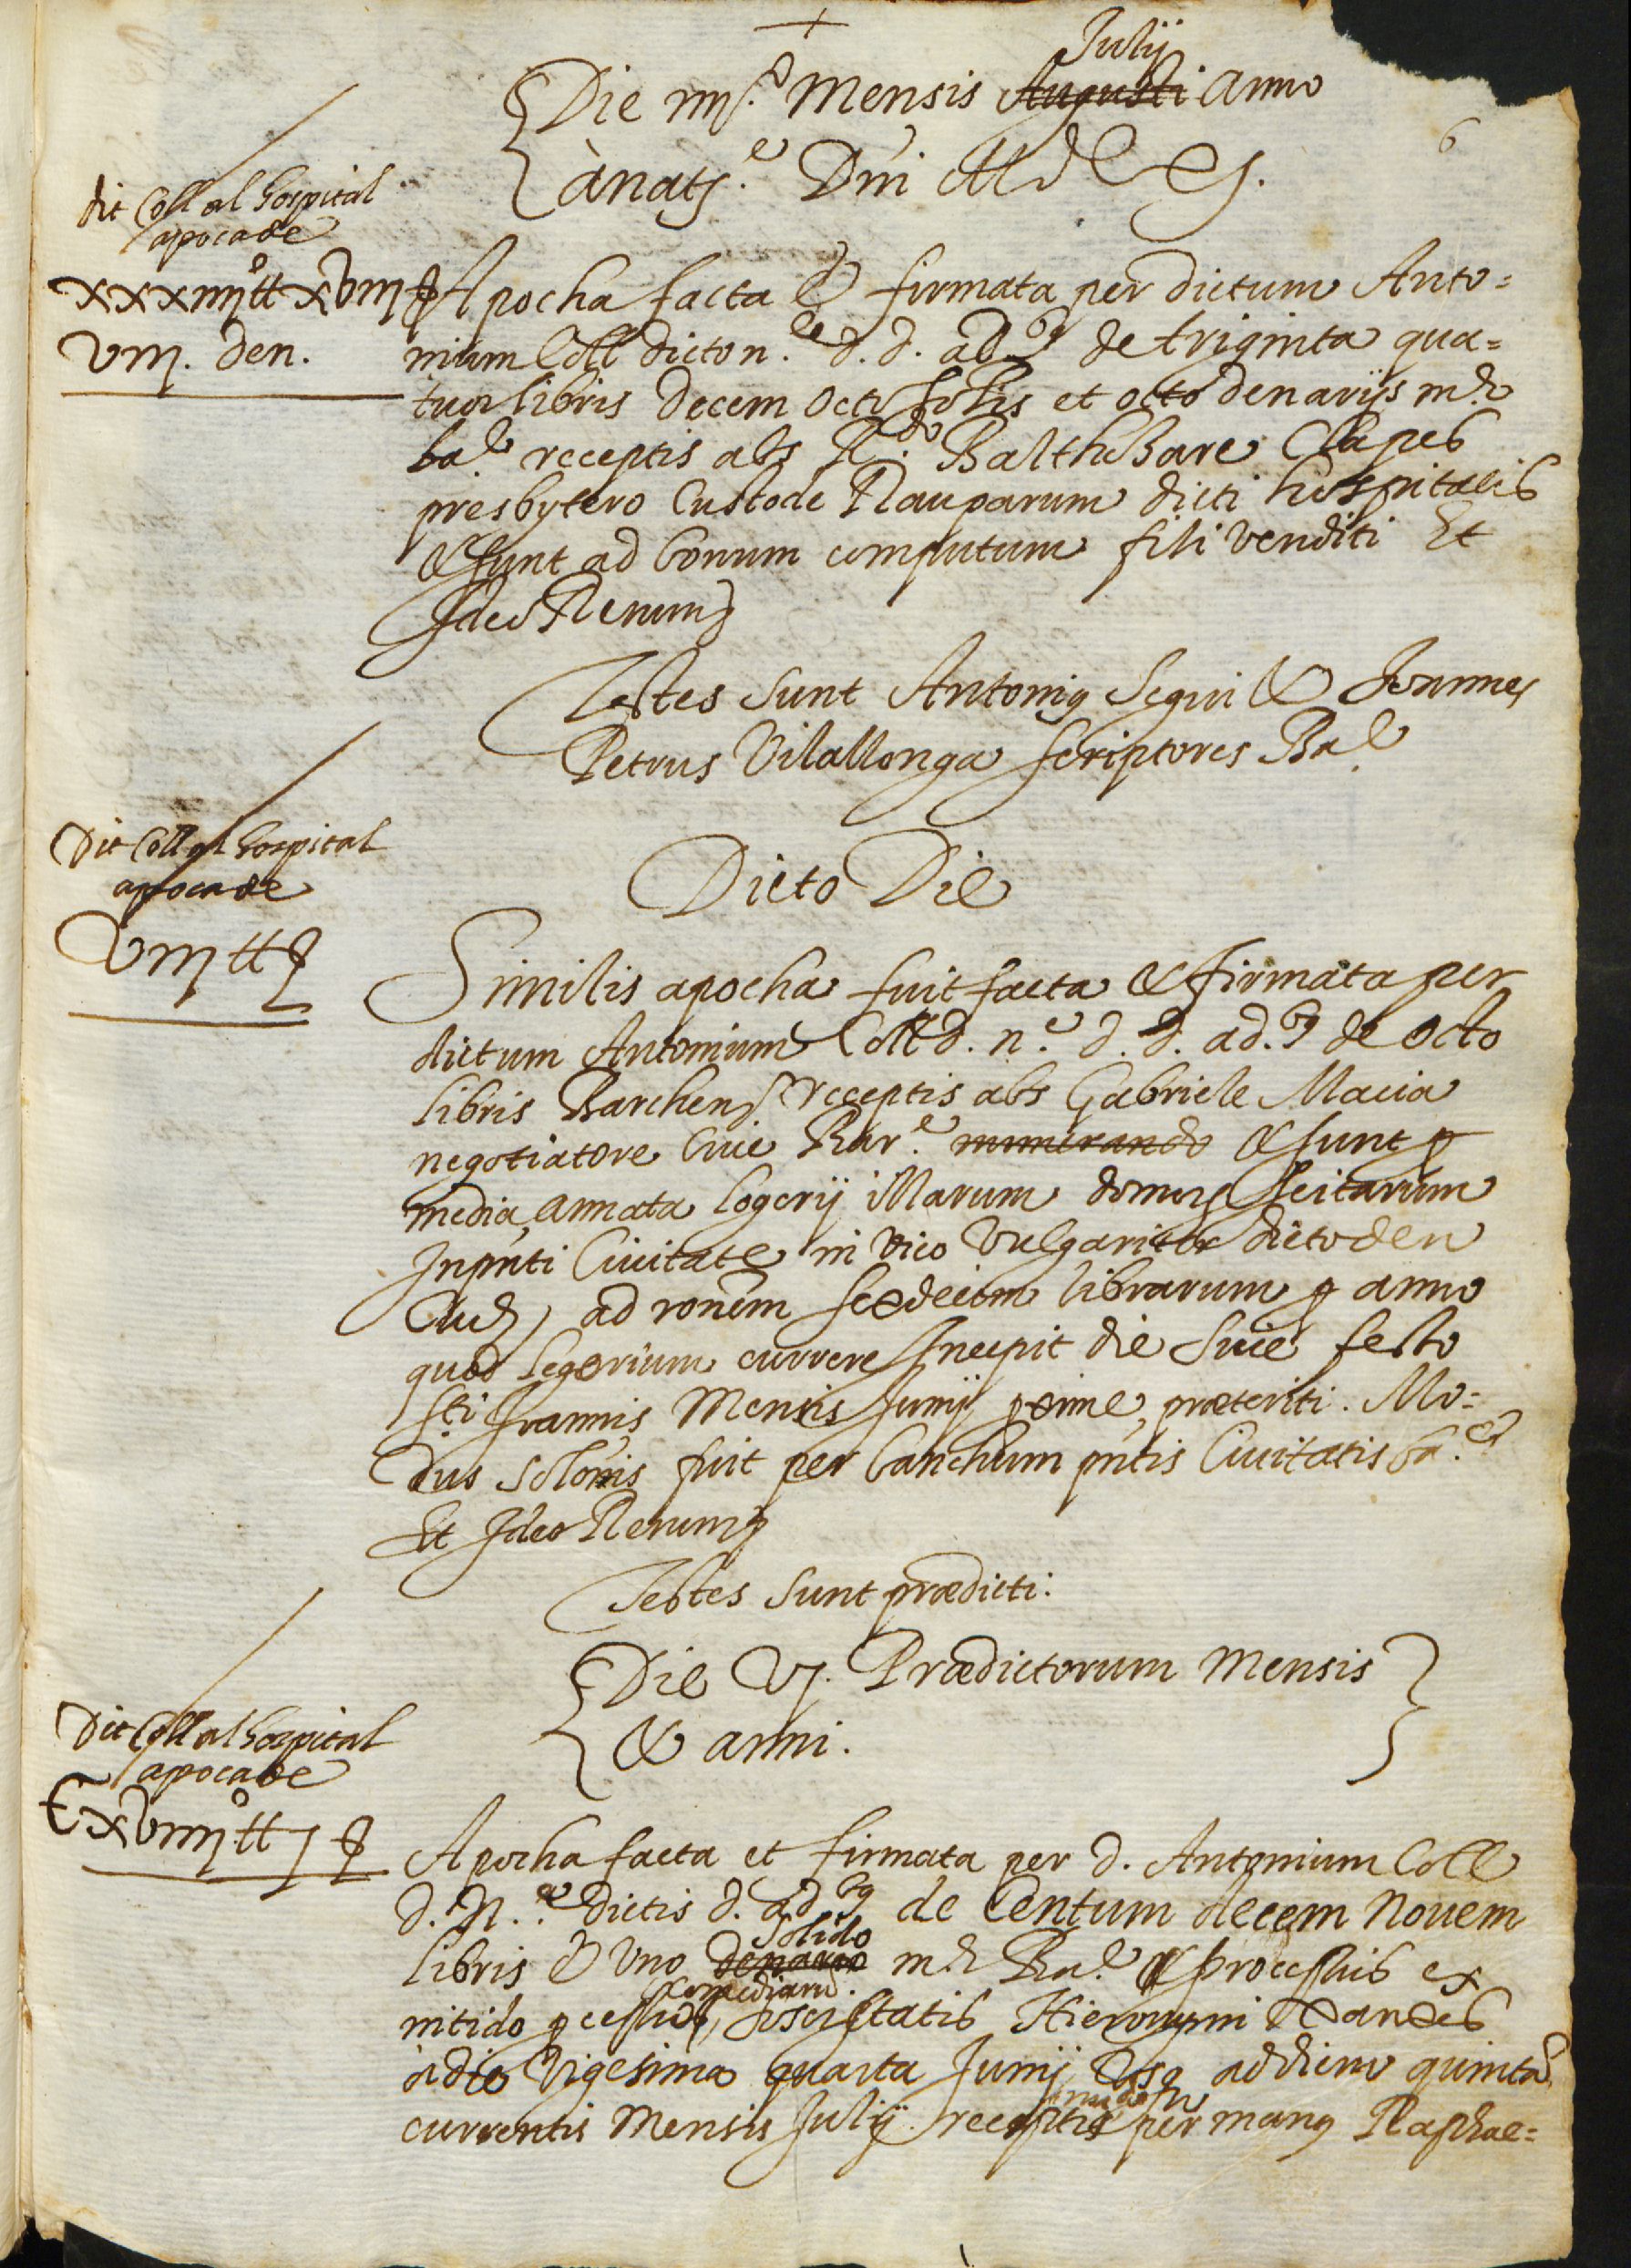 Julij
Die iiij.º Mensis Augusti anno
à nat.e Dñi MDC
6
dit Coll al hospital
apoca de
xxxiiijº ll xviij ß
viij. den.
Apocha facta & firmata per dictum Anto=
nium Coll dicto n.e d. d. ad.bus de triginta qua=
tuor libris decem octo solis et octo denarijs
receptis abs R.do Balthesare Clapes
presbytero Custode Pauparum dicti hospitalis
& sunt ad bonum computum fili venditi Et
Ideo Renun
Testes sunt Antonius Segui & Joannes
Petrus Vilallonga scriptores Ba.e
Dit Coll al hospital
apoca de
viij ll ß
Dicto Die
Similis apocha fuit facta & firmata per
dictum Antonium Coll d. n.e d. d. ad.bus de octo
libris Barchen receptis abs Gabriele Macia
negotiatore Cive Bar.e numerando & sunt p
media annata logerij illarum domus scitarum
In pñti Civitate in vico vulgariter dicto den
ad ronem sexdecim librarum p anno
quod logerium currere Incepit die sive festo
Sti Joannis Mensis Junij prime præteriti. Mo=
dus solonis fuit per banchum pñtis Civitatis ba.e
Et Ideo Renun
Testes sunt prædicti.
Die vj. Prædictorum Mensis
& anni.
Dit Coll al hospital
apoca de
Cxviiijº ll j ß
Apocha facta et firmata per d. Antonium Coll
d. N.e dictis d. ad.bus de Centum decem novem
solido
libris & uno denario Ba.e processuis ex
comediaru.
nitido Hieronymi
à die vigesima quarta Junij usq ad diem quinta
currentis Mensis Julij receptis per manus Raphae=